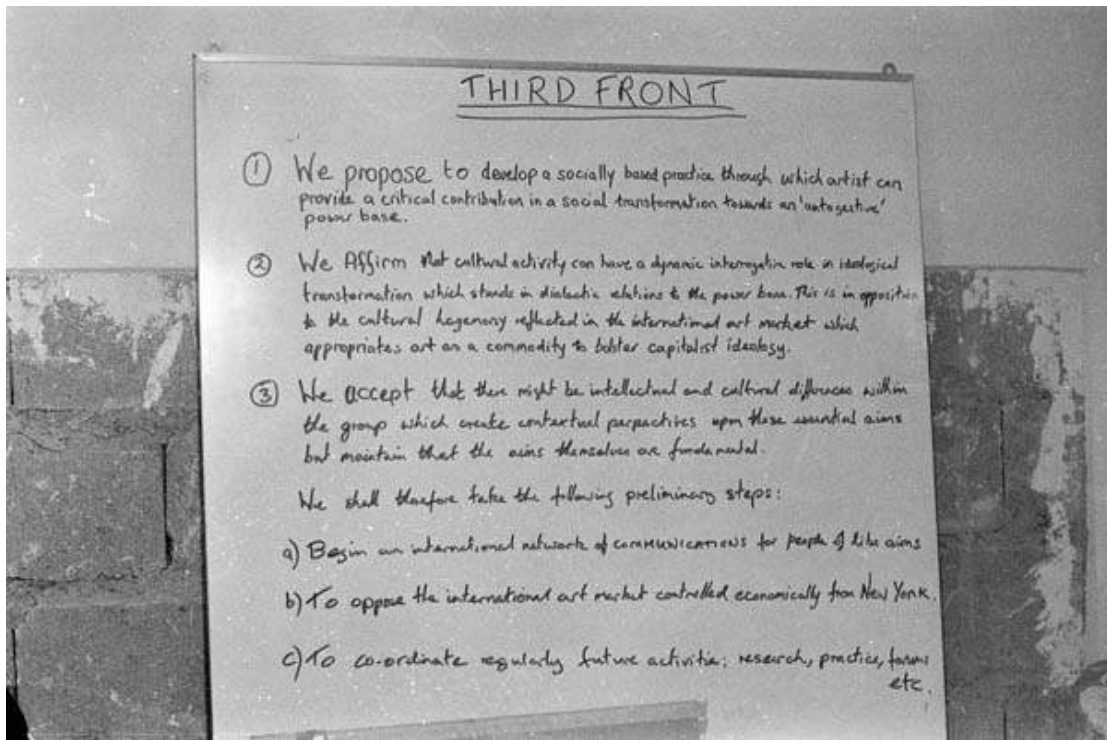 THIRD FRONT
① We propose to develop a socially based practice through which artist can
provide a critical contribution in a social transformation towards an 'autogestive'
power base.
② We Affirm that cultural activity can have a dynamic interrogative role in ideological
transformation which stands in dialectic relations to the power base. This is in opposition
to the cultural hegemony reflected in the international art market which
appropriates art as a commodity to bolster capitalist ideology.
③ We accept that there might be intellectual and cultural differences within
the group which create contextual perspectives upon these essential aims
but maintain that the aims themselves are fundamental.
We shall therefore take the following preliminary steps:
a) Begin an international network of COMMUNICATIONS for people of like aims
b) To oppose the international art market controlled economically from New York.
c) To co-ordinate regularly future activities; research, practice, forums
etc.